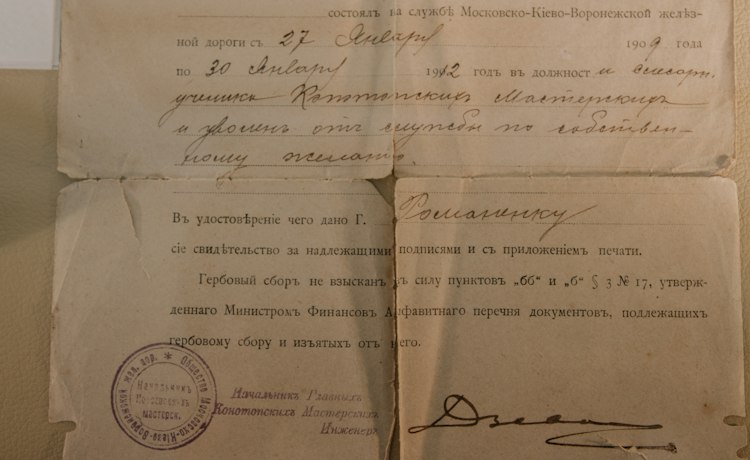 состоялъ на службѣ Московско-Кіево-Воронежской желѣз-
ной дороги съ 27 Января 1909 года
по 30 Января 1912 годъ въ должност и слесарн.
ученика Конотопскихъ Мастерскихъ
и уволенъ отъ службы по собствен-
ному желанію.
Въ удостовѣреніе чего дано Г. Романенку
сіе свидѣтельство за надлежащими подписями и съ приложеніемъ печати.
Гербовый сборъ не взысканъ въ силу пунктовъ „бб“ и „б“ § 3 № 17, утверж-
деннаго Министромъ Финансовъ Алфавитнаго перечня документовъ, подлежащихъ
гербовому сбору и изъятыхъ отъ него.
Общество Московско-Кіево-Воронежской жел. дор.
Начальникъ
мастерск.
Начальникъ Главныхъ
Конотопскихъ Мастерскихъ
Инженеръ